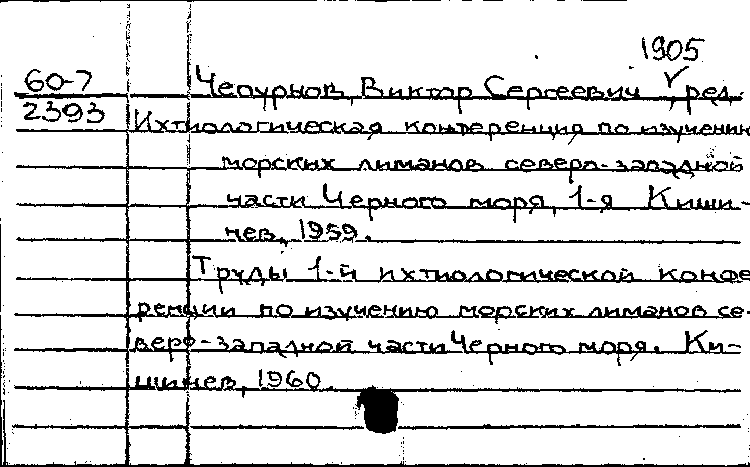 1905
60-7 Чепурнов, Виктор Сергеевич, ред.
2393 Ихтиологическая конференция по изучению
морских лиманов северо-западной
части Черного моря, 1-я Киши-
нев, 1959.
Труды 1-й ихтиологической конфе
ренции по изучению морских лиманов се-
веро-западной части Черного моря. Ки-
шинев, 1960.